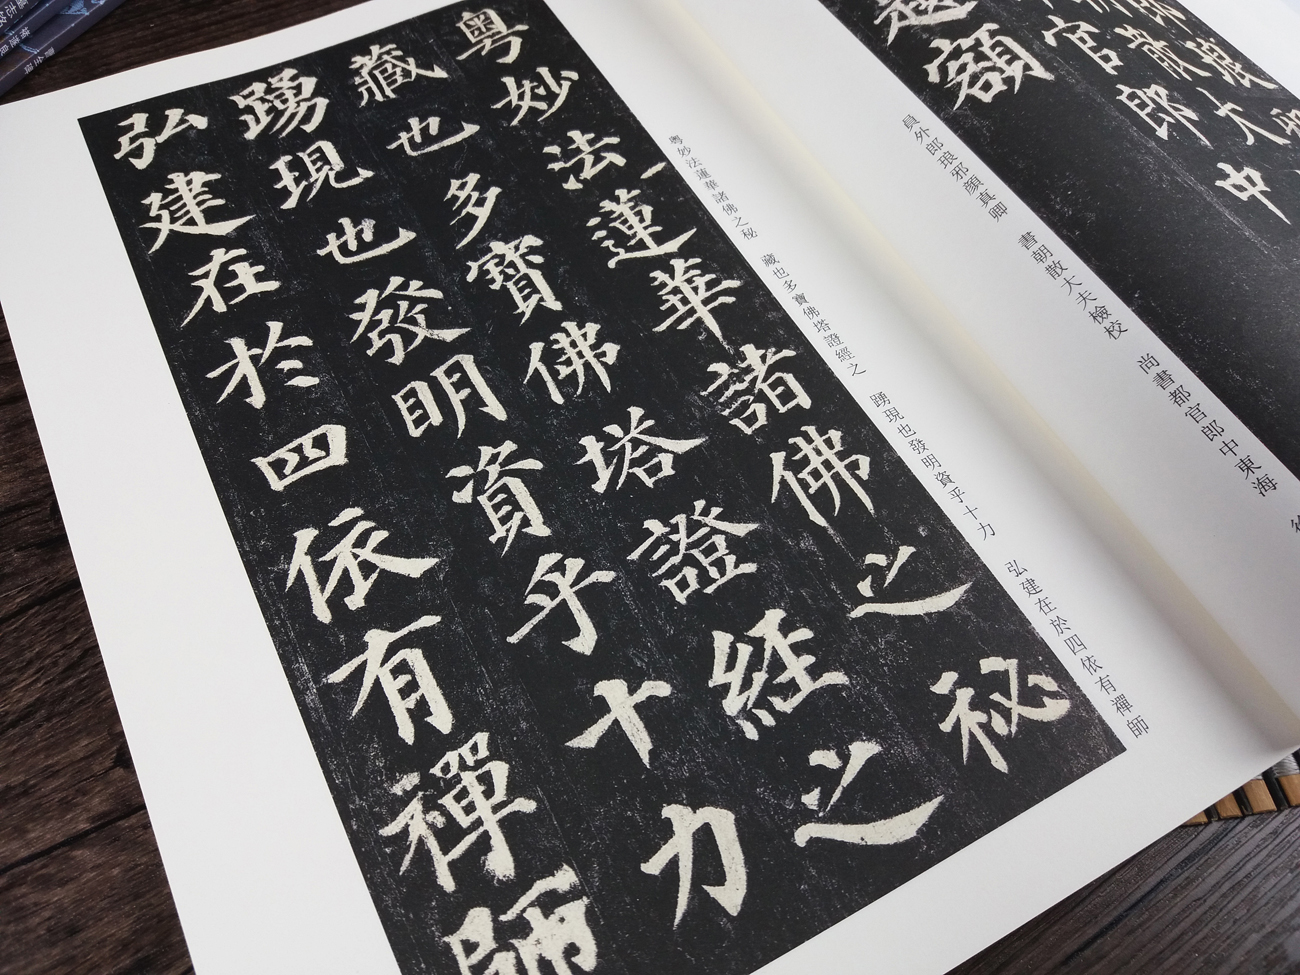 越額
官
散郎
郎
琅大中
員外郎琅邪顏真卿　書朝散大夫檢校　尚書都官郎中東海
粤妙法蓮華諸佛之秘
藏也多寶佛塔證經之
踴現也發明資乎十力
弘建在於四依有禪師
粤妙法蓮華諸佛之秘　藏也多寶佛塔證經之　踴現也發明資乎十力　弘建在於四依有禪師